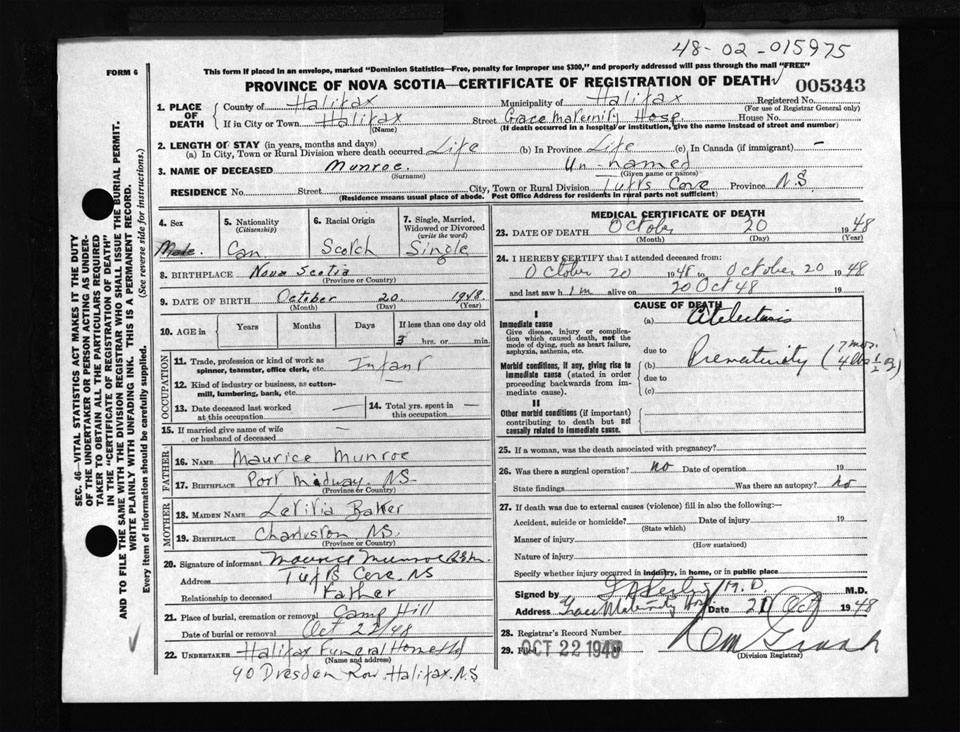 48-02-015975
FORM 6
This form if placed in an envelope, marked "Dominion Statistics—Free, penalty for improper use $300," and properly addressed will pass through the mail "FREE"
PROVINCE OF NOVA SCOTIA—CERTIFICATE OF REGISTRATION OF DEATH 005343
1. PLACE OF DEATH County of Halifax Municipality of Halifax Registered No.
(For use of Registrar General only)
If in City or Town Halifax Street Grace Maternity Hosp House No.
(Name) (If death occurred in a hospital or institution, give the name instead of street and number)
2. LENGTH OF STAY (in years, months and days)
(a) In City, Town or Rural Division where death occurred Life (b) In Province Life (c) In Canada (if immigrant) —
3. NAME OF DECEASED Munroe Un-named
(Surname) (Given name or names)
RESIDENCE No. Street City, Town or Rural Division Tufts Cove Province N.S.
(Residence means usual place of abode. Post Office Address for residents in rural parts not sufficient)
SEC. 46—VITAL STATISTICS ACT MAKES IT THE DUTY
OF THE UNDERTAKER OR PERSON ACTING AS UNDER-
TAKER TO OBTAIN ALL THE PARTICULARS REQUIRED
IN THE "CERTIFICATE OF REGISTRATION OF DEATH"
AND TO FILE THE SAME WITH THE DIVISION REGISTRAR WHO SHALL ISSUE THE BURIAL PERMIT.
WRITE PLAINLY WITH UNFADING INK. THIS IS A PERMANENT RECORD.
Every item of information should be carefully supplied. (See reverse side for instructions.)
4. Sex 5. Nationality (Citizenship) 6. Racial Origin 7. Single, Married, Widowed or Divorced (write the word)
Male. Can Scotch Single
8. BIRTHPLACE Nova Scotia
(Province or Country)
9. DATE OF BIRTH October 20 1948.
(Month) (Day) (Year)
10. AGE in Years Months Days If less than one day old
3 hrs. or min.
OCCUPATION
11. Trade, profession or kind of work as
spinner, teamster, office clerk, etc. Infant
12. Kind of industry or business, as cotton-
mill, lumbering, bank, etc. —
13. Date deceased last worked at this occupation — 14. Total yrs. spent in this occupation —
15. If married give name of wife
or husband of deceased —
FATHER
16. NAME Maurice Munroe
17. BIRTHPLACE Port Midway. NS
(Province or Country)
MOTHER
18. MAIDEN NAME Letitia Baker
19. BIRTHPLACE Charleston NS.
(Province or Country)
20. Signature of informant Maurice Munroe
Address Tufts Cove. NS
Relationship to deceased Father
21. Place of burial, cremation or removal Camp Hill
Date of burial or removal Oct 22/48
22. UNDERTAKER Halifax Funeral Home Ltd
(Name and address)
90 Dresden Row. Halifax. N.S
MEDICAL CERTIFICATE OF DEATH
23. DATE OF DEATH October 20 1948
(Month) (Day) (Year)
24. I HEREBY CERTIFY that I attended deceased from:
October 20 1948 to October 20 1948
and last saw him alive on 20 Oct 48 19
CAUSE OF DEATH
I
Immediate cause (a) Atelectasis
Give disease, injury or complica-
tion which caused death, not the
mode of dying, such as heart failure,
asphyxia, asthenia, etc.
due to
(b) Prematurity (7 mos.
Morbid conditions, if any, giving rise to
immediate cause (stated in order
proceeding backwards from im-
mediate cause).
due to
(c)
II
Other morbid conditions (if important)
contributing to death but not
causally related to immediate cause.
25. If a woman, was the death associated with pregnancy?
26. Was there a surgical operation? no Date of operation 19
State findings Was there an autopsy? no
27. If death was due to external causes (violence) fill in also the following:—
Accident, suicide or homicide? Date of injury 19
(State which)
Manner of injury
(How sustained)
Nature of injury
Specify whether injury occurred in industry, in home, or in public place
Signed by M.D M.D.
Address Grace Maternity Hosp Date 21 Oct 1948
28. Registrar's Record Number
29. Filed OCT 22 1948
(Division Registrar)